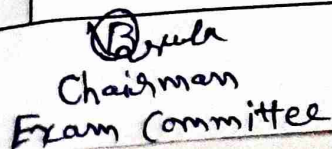 Chairman
Exam Committee